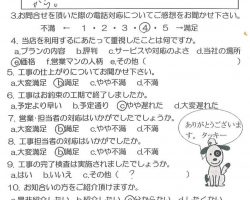 3.お問合せを頂いた際の電話対応についてご感想をお聞かせ下さい。
不満 ← 1・2・3・④・5 → 満足
4. 当店を利用するにあたって重視したことは何ですか。
a.プランの内容 b.評判 c.サービスや対応のよさ d.当社の場所
e.価格 f.営業マンの人柄 e.その他(
5. 工事の仕上がりについてお聞かせ下さい。
a.大変満足 b.満足 c.やや不満 d.不満
6. 工事はお約束の工期で終了しましたか。
a.予定より早い b.予定通り c.やや遅れた d.大変遅れた
7. 営業・担当者の対応はいかがでしたでしょうか。
a.大変満足 b.満足 c.やや不満 d.不満
8. 工事担当者の対応はいかがでしたか。
a.大変満足 b.満足 c.やや不満 d.不満
9. 工事の完了検査は実施されましたでしょうか。
a.はい b.いいえ c.その他(
10. お知り合いの方をご紹介頂けますか。
ありがとうございます。タッキー